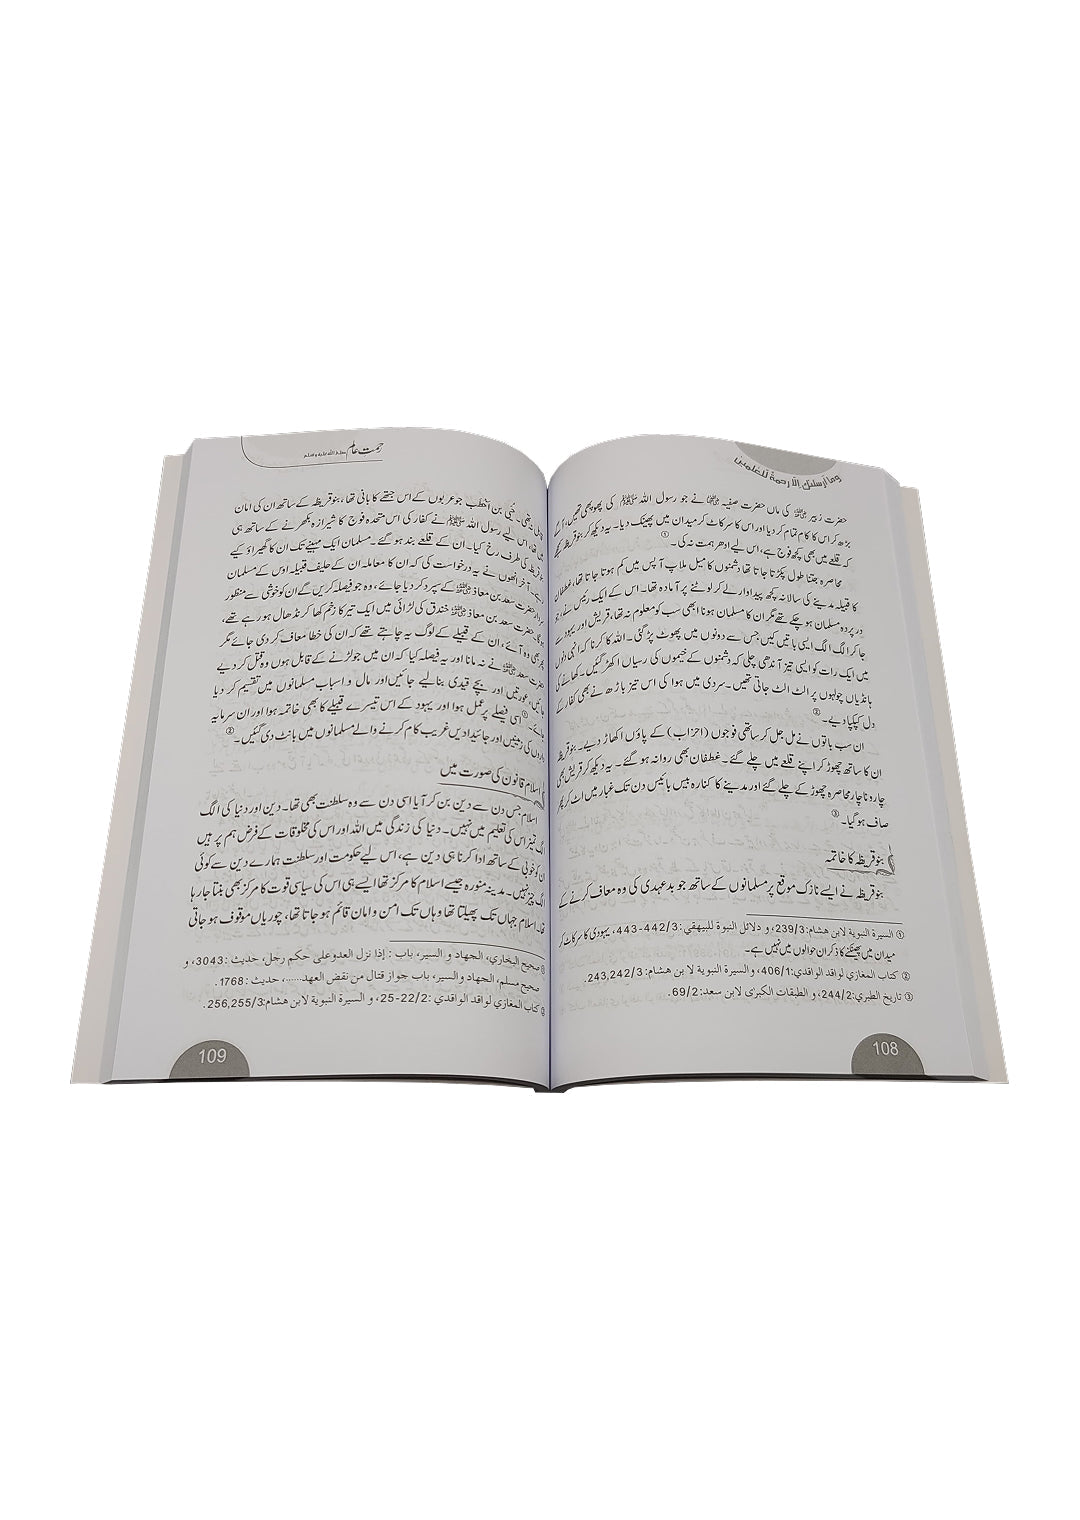 وما أرسلنك إلا رحمة للعلمين
حضرت زبیر رضی اللہ عنہ کی ماں حضرت صفیہ رضی اللہ عنہا نے جو رسول اللہ ﷺ کی پھوپھی تھیں، آگے
بڑھ کر اس کا کام تمام کر دیا اور اس کا سر کاٹ کر میدان میں پھینک دیا۔ یہ دیکھ کر بنو قریظہ سمجھے
کہ قلعے میں بھی کچھ فوج ہے، اس لیے ادھر ہمت نہ کی۔ ①
محاصرہ جتنا طول پکڑتا جاتا تھا دشمنوں کا میل ملاپ آپس میں کم ہوتا جاتا تھا، غطفان
کا قبیلہ مدینے کی سالانہ کچھ پیداوار لے کر لوٹنے پر آمادہ تھا۔ اس کے ایک رئیس نے جو
در پردہ مسلمان ہو چکے تھے مگر ان کا مسلمان ہونا ابھی سب کو معلوم نہ تھا، قریش اور یہود سے
جا کر الگ الگ ایسی باتیں کیں جس سے دونوں میں پھوٹ پڑ گئی۔ اللہ کا کرنا کہ انہی دنوں
میں ایک رات کو ایسی تیز آندھی چلی کہ دشمنوں کے خیموں کی رسیاں اکھڑ گئیں۔ کھانے کی
ہانڈیاں چولہوں پر الٹ الٹ جاتی تھیں۔ سردی میں ہوا کی اس تیز باڑھ نے بھی کفار کے
دل کپکپا دیے۔ ②
ان سب باتوں نے مل جل کر ساتھی فوجوں (احزاب) کے پاؤں اکھاڑ دیے۔ بنو قریظہ
ان کا ساتھ چھوڑ کر اپنے قلعے میں چلے گئے۔ غطفان بھی روانہ ہو گئے۔ یہ دیکھ کر قریش بھی
چار و ناچار محاصرہ چھوڑ کے چلے گئے اور مدینے کا کنارہ بیس بائیس دن تک غبار میں اٹ کر پھر
صاف ہو گیا۔ ③
بنو قریظہ کا خاتمہ
بنو قریظہ نے ایسے نازک موقع پر مسلمانوں کے ساتھ جو بدعہدی کی وہ معاف کرنے کے
① السيرة النبوية لابن هشام:239/3، و دلائل النبوة للبيهقي:442/3-443، یہودی کا سر کاٹ کر
میدان میں پھینکنے کا ذکر ان حوالوں میں نہیں ہے۔
② كتاب المغازي لواقد الواقدي:406/1، والسيرة النبوية لا بن هشام:243,242/3.
③ تاريخ الطبري:244/2، و الطبقات الكبرى لابن سعد:69/2.
108
رحمت عالم صلی اللہ علیہ وسلم
نہ تھی۔ حُیَی بن اخطب جو عربوں کے اس جتھے کا بانی تھا، بنو قریظہ کے ساتھ ان کی امان
میں تھا، اس لیے رسول اللہ ﷺ نے کفار کی اس متحدہ فوج کا شیرازہ بکھرنے کے ساتھ ہی
بنو قریظہ کی طرف رخ کیا۔ ان کے قلعے بند ہو گئے۔ مسلمان ایک مہینے تک ان کا گھیراؤ کیے
رہے۔ آخر انھوں نے یہ درخواست کی کہ ان کا معاملہ ان کے حلیف قبیلہ اوس کے مسلمان
سردار حضرت سعد بن معاذ رضی اللہ عنہ کے سپرد کر دیا جائے، وہ جو فیصلہ کریں گے ان کو خوشی سے منظور
ہوگا۔ حضرت سعد بن معاذ رضی اللہ عنہ خندق کی لڑائی میں ایک تیر کا زخم کھا کر نڈھال ہو رہے تھے،
پھر بھی وہ آئے، ان کے قبیلے کے لوگ یہ چاہتے تھے کہ ان کی خطا معاف کر دی جائے مگر
حضرت سعد رضی اللہ عنہ نے نہ مانا اور یہ فیصلہ کیا کہ ان میں جو لڑنے کے قابل ہوں وہ قتل کر دیے
جائیں، عورتیں اور بچے قیدی بنا لیے جائیں اور مال و اسباب مسلمانوں میں تقسیم کر دیا
جائے۔ ① اسی فیصلے پر عمل ہوا اور یہود کے اس تیسرے قبیلے کا بھی خاتمہ ہوا اور ان سرمایہ
داروں کی زمینیں اور جائیدادیں غریب کام کرنے والے مسلمانوں میں بانٹ دی گئیں۔ ②
اسلام قانون کی صورت میں
اسلام جس دن سے دین بن کر آیا اسی دن سے وہ سلطنت بھی تھا۔ دین اور دنیا کی الگ
الگ تمیز اس کی تعلیم میں نہیں۔ دنیا کی زندگی میں اللہ اور اس کی مخلوقات کے فرض ہم پر ہیں
ان کو خوبی کے ساتھ ادا کرنا ہی دین ہے، اس لیے حکومت اور سلطنت ہمارے دین سے کوئی
الگ چیز نہیں۔ مدینہ منورہ جیسے اسلام کا مرکز تھا ایسے ہی اس کی سیاسی قوت کا مرکز بھی بنتا جا رہا
تھا۔ اسلام جہاں تک پھیلتا تھا وہاں تک امن و امان قائم ہو جاتا تھا، چوریاں موقوف ہو جاتی
① صحيح البخاري، الجهاد و السير، باب : إذا نزل العدو على حكم رجل، حديث :3043، و
صحيح مسلم، الجهاد والسير، باب جواز قتال من نقض العهد....، حديث :1768.
② كتاب المغازي لواقد الواقدي :22/2-25، و السيرة النبوية لابن هشام:256,255/3.
109